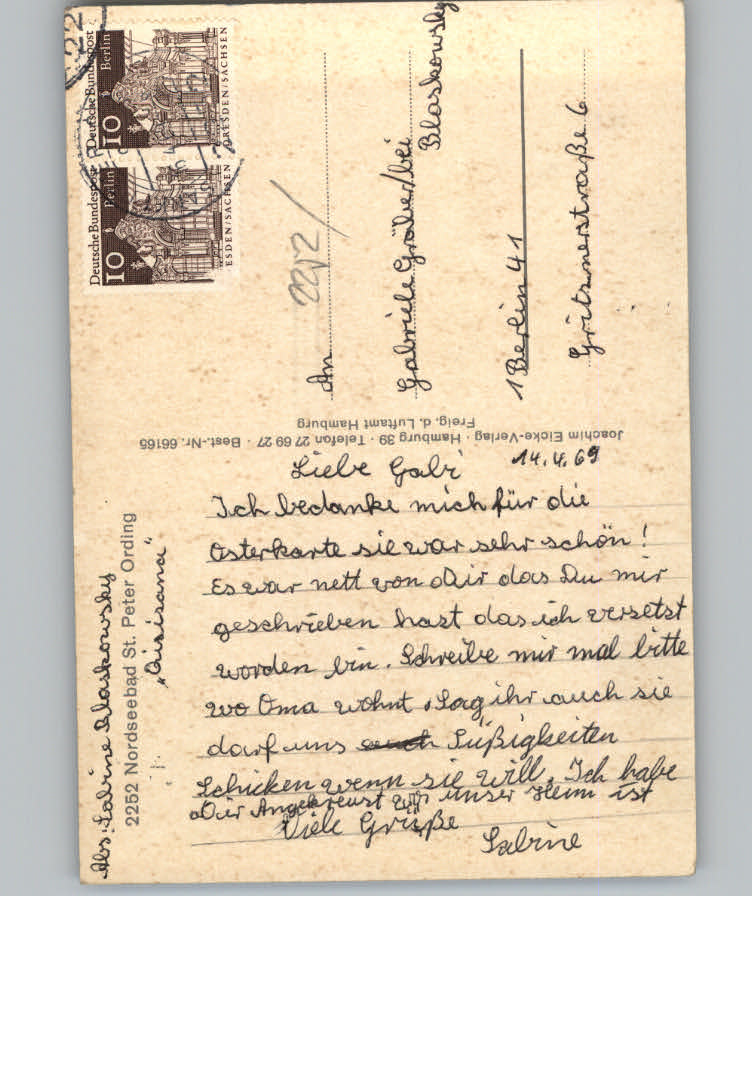 Deutsche Bundespost
Berlin
10
DRESDEN/SACHSEN
Deutsche Bundespost
Berlin
10
ESDEN/SACHSEN
22
2252/
An
Gabriele Gräber/bei
Blaskowsky
1 Berlin 41
Grützmerstraße 6
Joachim Eicke-Verlag · Hamburg 39 · Telefon 27 69 27 · Best.-Nr. 66165
Freig. d. Luftamt Hamburg
Abs: Sabine Blaskowsky
2252 Nordseebad St. Peter Ording
„Quisisana“
14.4.69
Liebe Gabi
Ich bedanke mich für die
Osterkarte sie war sehr schön!
Es war nett von Dir das Du mir
geschrieben hast das ich versetst
worden bin. Schreibe mir mal bitte
wo Oma wohnt. Sag ihr auch sie
darf uns Süßigkeiten
Schicken wenn sie will. Ich habe
Dir Angekreust wo unser Heim ist
Viele Grüße
Sabine